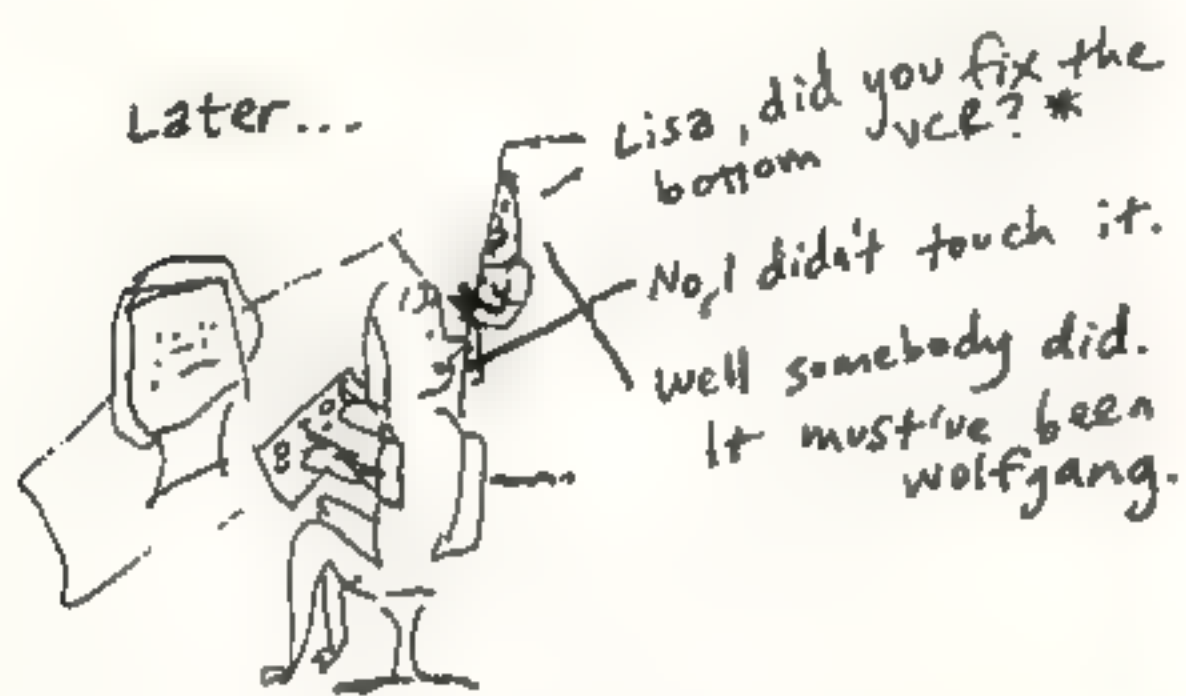 Later...
Lisa, did you fix the
bottom VCR? *
No, I didn't touch it.
Well somebody did.
It must've been
Wolfgang.